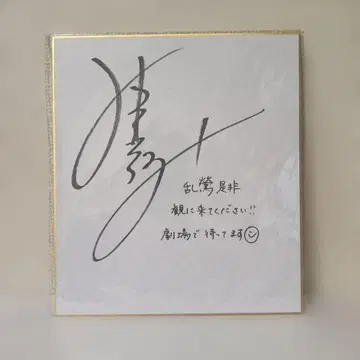 乱鶯 是非
観に来てください!!
劇場で待ってます